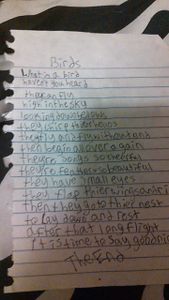 Birds
What in a bird
haven't you heard
they can fly
high in the sky
looking down below us
they chirp their
they fly and fly without end
then begin all over again
they're songs so cheerful
they're feathers so beautiful
they have small eyes
they flap their wings and rise
then they go to thier nest
to lay down and rest
after that long flight
it is time to say goodnight
The End